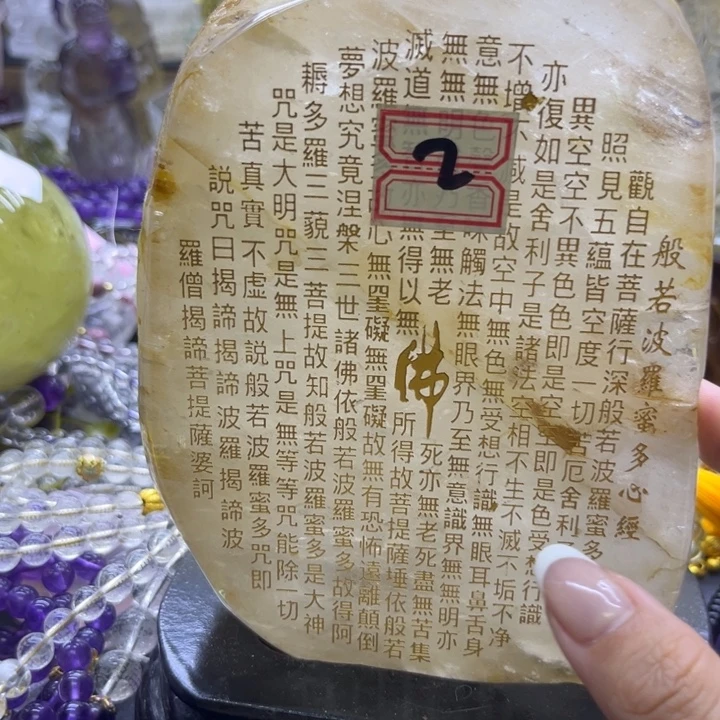 般若波羅蜜多心經
觀自在菩薩行深般若波羅蜜多
照見五蘊皆空度一切苦厄舍利
異空空不異色色即是空空即是色受想行識
亦復如是舍利子是諸法空相不生不滅不垢不净
不增不減是故空中無色無受想行識無眼耳鼻舌身
意無色味觸法無眼界乃至無意識界無無明亦
無無明至無老死亦無老死盡無苦集
滅道無無得以無所得故菩提薩埵依般若
波羅心無罣礙無罣礙故無有恐怖遠離顛倒
夢想究竟涅槃三世諸佛依般若波羅蜜多故得阿
耨多羅三藐三菩提故知般若波羅蜜多是大神
咒是大明咒是無上咒是無等等咒能除一切
苦真實不虛故説般若波羅蜜多咒即
説咒曰揭諦揭諦波羅揭諦波
羅僧揭諦菩提薩婆訶
佛
2